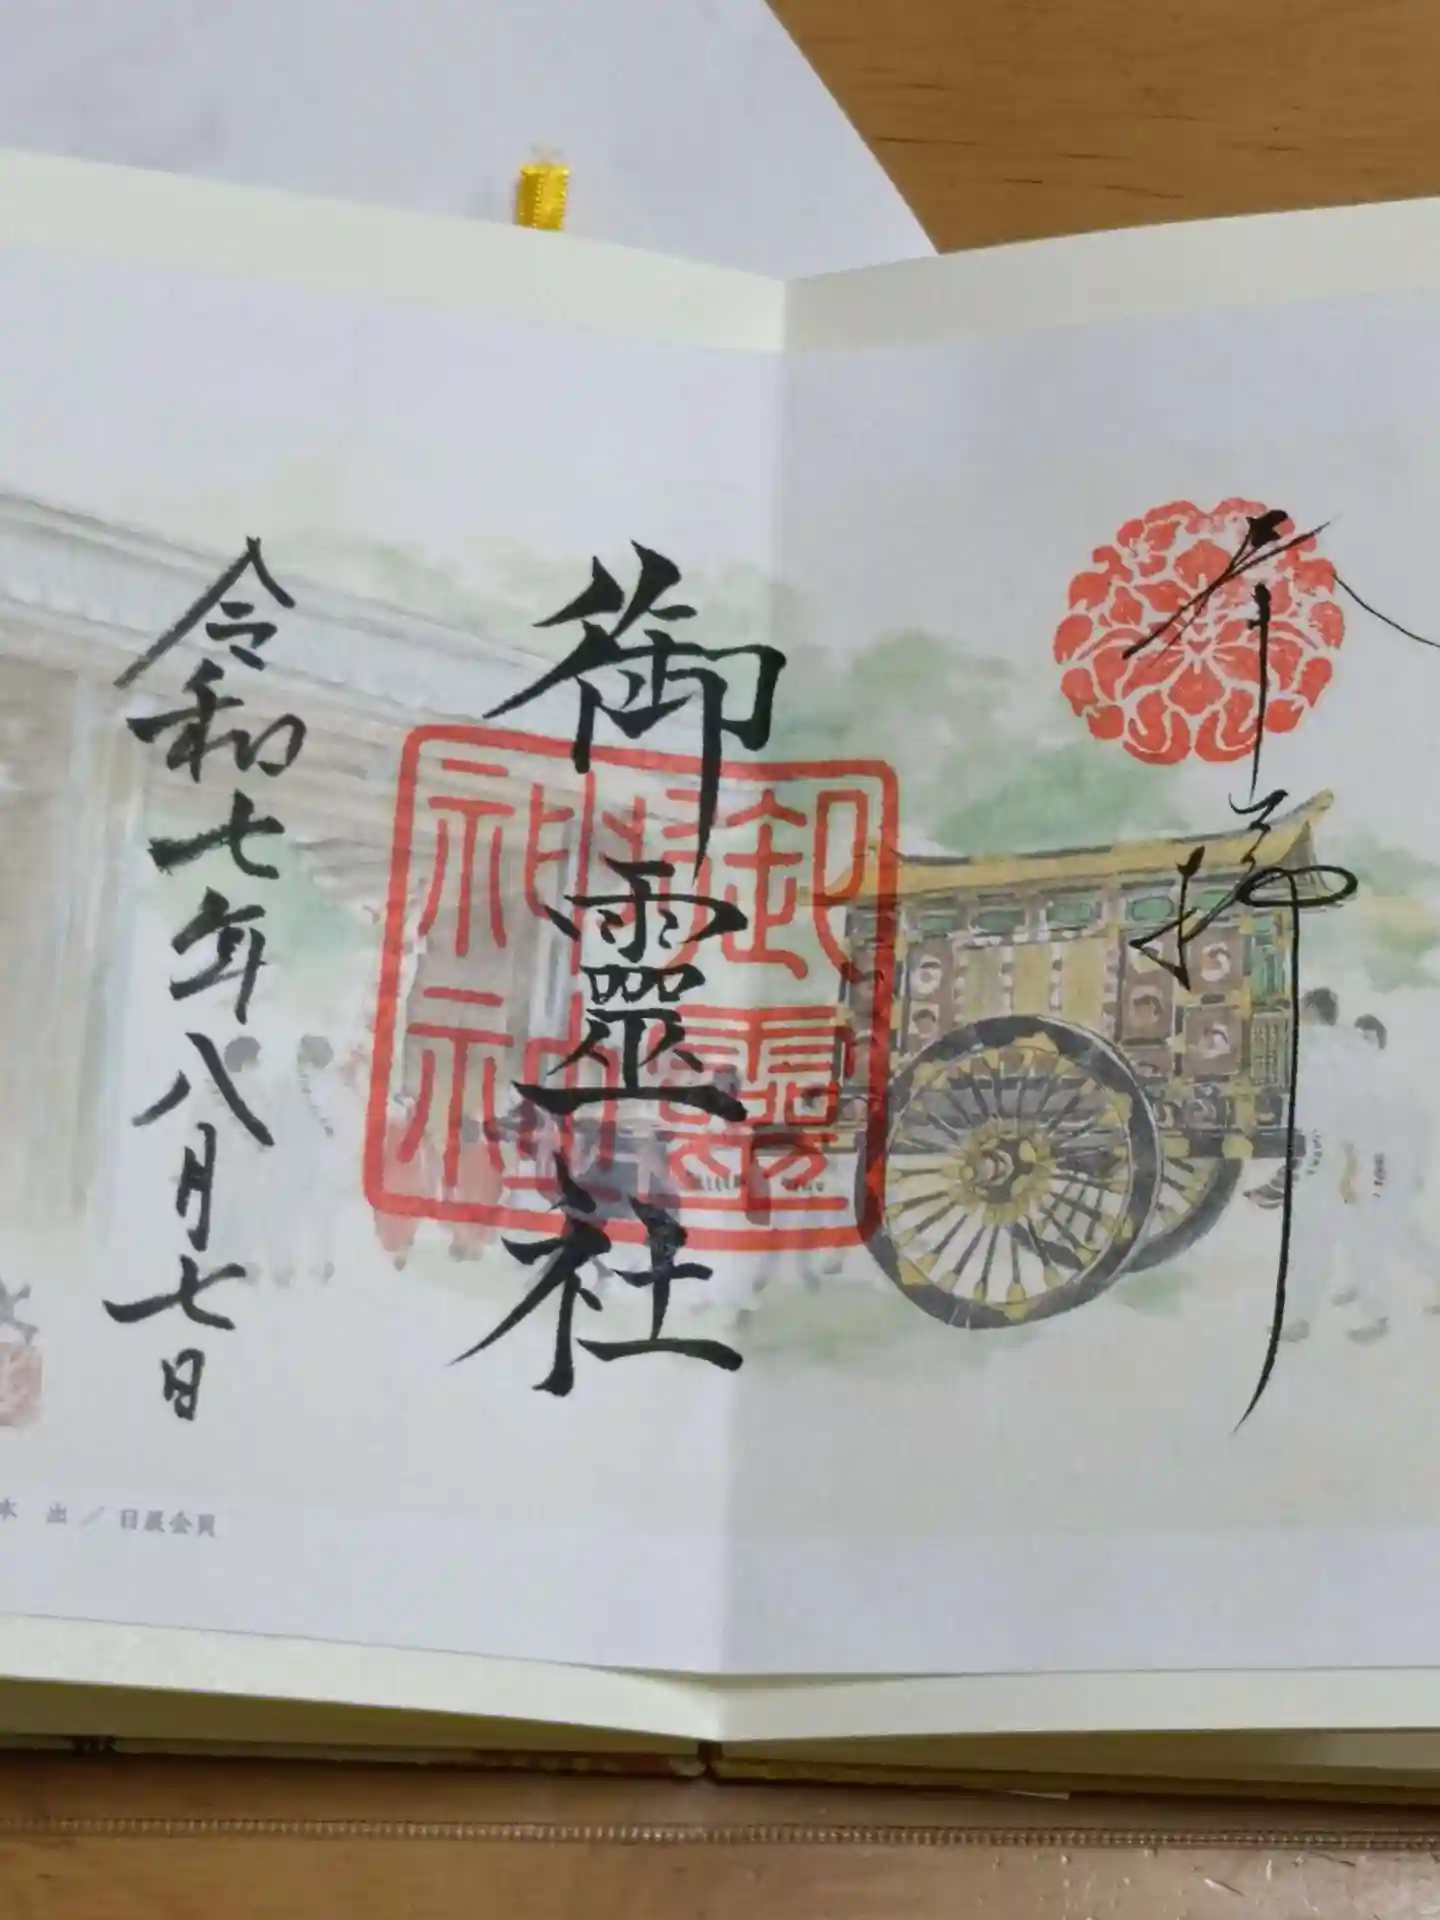 奉拝
御靈社
御靈神社
令和七年八月七日
出／日展会員